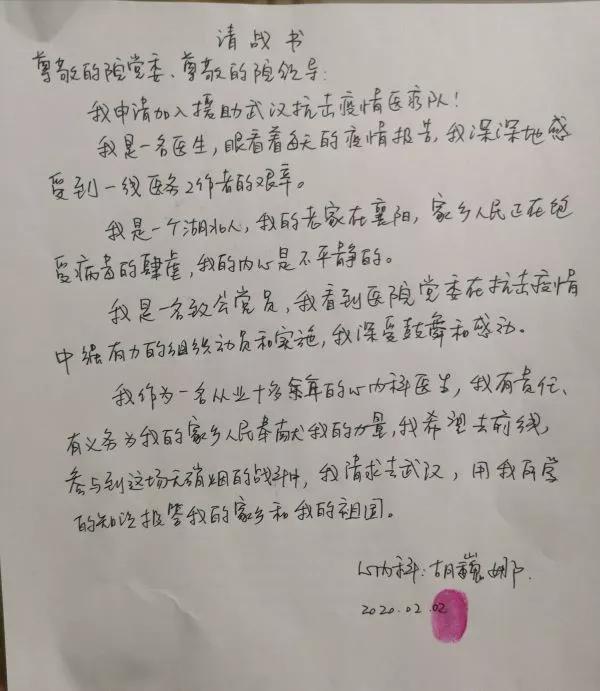 请战书
尊敬的院党委、尊敬的院领导：
我申请加入援助武汉抗击疫情医疗队！
我是一名医生，眼看着每天的疫情报告，我深深地感
受到一线医务工作者的艰辛。
我是一个湖北人，我的老家在襄阳，家乡人民正在饱
受病毒的肆虐，我的内心是不平静的。
我是一名致公党员，我看到医院党委在抗击疫情
中强有力的组织动员和实施，我深受鼓舞和感动。
我作为一名从业十多余年的心内科医生，我有责任、
有义务为我的家乡人民奉献我的力量，我希望去前线，
参与到这场无硝烟的战斗中，我请求去武汉，用我所学
的知识报答我的家乡和我的祖国。
心内科：胡巍娜
2020.02.02